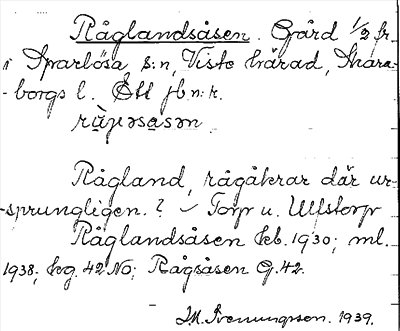 Råglandsåsen. Gård 1/2 fr.
i Sparlösa s:n, Viste härad, Skara-
-borgs l. Ett jb.n:r.
Rågland, rågåkrar där ur-
-sprungligen.? Torp u. Ulfstorp
Råglandsåsen kb. 1930; ml.
1938; kg. 42 No; Rågsåsen G.42.
1939.